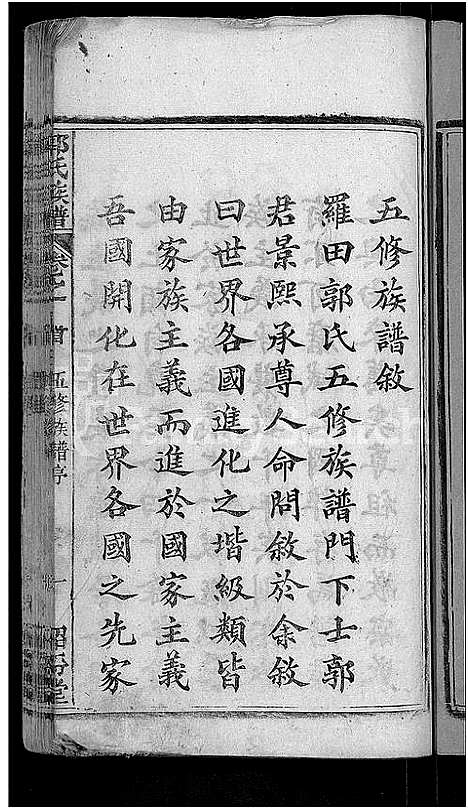 五修族譜敘
羅田郭氏五修族譜門下士郭
君景熙承尊人命問敘於余敘
曰世界各國進化之堦級類皆
由家族主義而進於國家主義
吾國開化在世界各國之先家
郭氏族譜 卷之首 五修族譜序 一